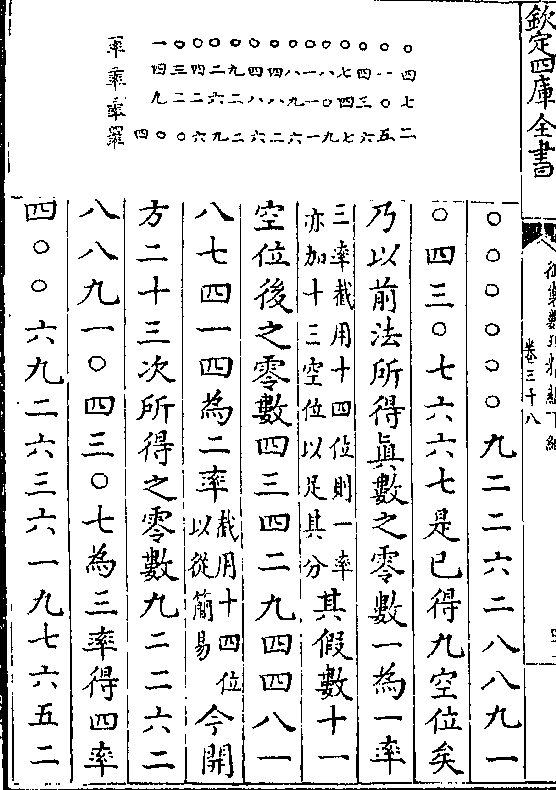 欽定四庫全書
卷三十八
一率 一〇〇〇〇〇〇〇〇〇〇〇〇〇
二率 四三四二九四四八一八七四一四
三率 九二二六二八八九一〇四三〇七
四率 四〇〇六九二六三六一九七六五二
〇〇〇〇〇〇九二二六二八八九一
〇四三〇七六六七是已得九空位矣
乃以前法所得眞數之零數一為一率
三率截用十四位則一率
亦加十三空位以足其分
其假數十一
空位後之零數四三四二九四四八一
八七四一四為二率
截用十四位
以從簡易
今開
方二十三次所得之零數九二二六二
八八九一〇四三〇七為三率得四率
四〇〇六九二六三六一九七六五二